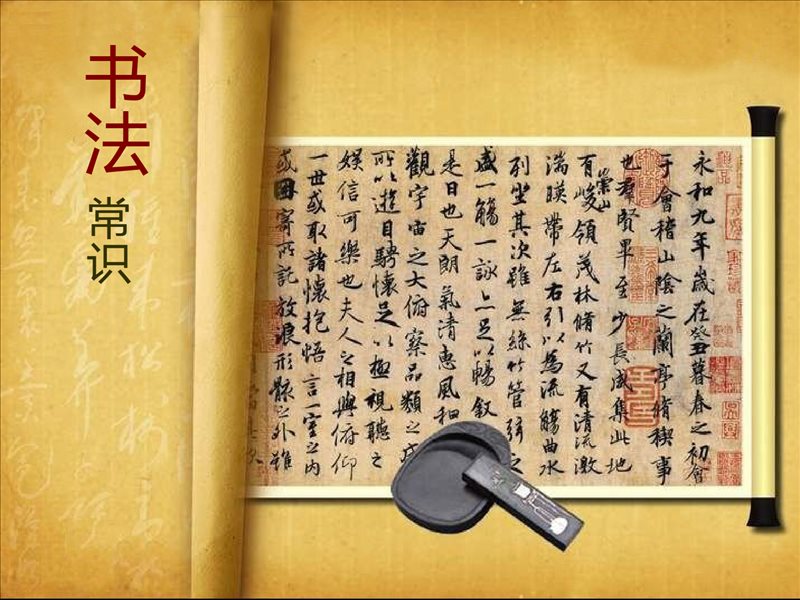 书法
常识
永和九年歲在癸丑暮春之初會
于會稽山陰之蘭亭脩禊事
也羣賢畢至少長咸集此地
有崇山峻領茂林脩竹又有清流激
湍暎帶左右引以為流觴曲水
列坐其次雖無絲竹管弦之
盛一觴一詠亦足以暢敘
是日也天朗氣清惠風和
觀宇宙之大俯察品類之
所以遊目騁懷足以極視聽之
娛信可樂也夫人之相與俯仰
一世或取諸懷抱悟言一室之內
或因寄所託放浪形骸之外雖